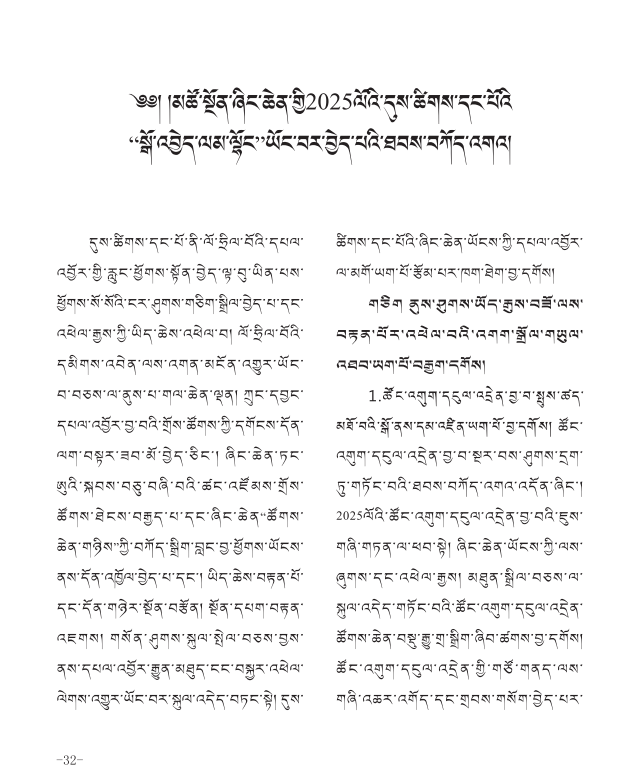 ༄༅། །མཚོ་སྔོན་ཞིང་ཆེན་གྱི2025ལོའི་དུས་ཚིགས་དང་པོའི
“སྒོ་འབྱེད་ལམ་ལྷོང”ཡོང་བར་བྱེད་པའི་ཐབས་བཀོད་འགའ།
དུས་ཚིགས་དང་པོ་ནི་ལོ་ཧྲིལ་བོའི་དཔལ་
འབྱོར་གྱི་རླུང་ཕྱོགས་སྟོན་བྱེད་ལྟ་བུ་ཡིན་པས་
ཕྱོགས་སོ་སོའི་ངར་ཤུགས་གཅིག་སྒྲིལ་བྱེད་པ་དང་
འཕེལ་རྒྱས་ཀྱི་ཡིད་ཆེས་འཕེལ་བ། ལོ་ཧྲིལ་བོའི་
དམིགས་འབེན་ལས་འགན་མངོན་འགྱུར་ཡོང་
བ་བཅས་ལ་ནུས་པ་གལ་ཆེན་ལྡན། ཀྲུང་དབྱང་
དཔལ་འབྱོར་བྱ་བའི་གྲོས་ཚོགས་ཀྱི་དགོངས་དོན་
ལག་བསྟར་ཟབ་མོ་བྱེད་ཅིང་། ཞིང་ཆེན་ཏང་
ཨུའི་སྐབས་བཅུ་བཞི་བའི་ཚང་འཛོམས་གྲོས་
ཚོགས་ཐེངས་བརྒྱད་པ་དང་ཞིང་ཆེན“ཚོགས་
ཆེན་གཉིས”ཀྱི་བཀོད་སྒྲིག་བླང་བྱ་ཕྱོགས་ཡོངས་
ནས་དོན་འཁྱོལ་བྱེད་པ་དང་། ཡིད་ཆེས་བརྟན་པོ་
དང་དོན་གཉེར་སྔོན་བརྩོན། སྔོན་དཔག་བརྟན་
འཇགས། གསོན་ཤུགས་སྐུལ་སྤེལ་བཅས་བྱས་
ནས་དཔལ་འབྱོར་རྒྱུན་མཐུད་ངང་བསྐྱར་འཕེལ་
ལེགས་འགྱུར་ཡོང་བར་སྐུལ་འདེད་བཏང་སྟེ། དུས་
ཚིགས་དང་པོའི་ཞིང་ཆེན་ཡོངས་ཀྱི་དཔལ་འབྱོར་
ལ་མགོ་ཡག་པོ་རྩོམ་པར་ཁག་ཐེག་བྱ་དགོས།
གཅིག ནུས་ཤུགས་ཡོད་རྒུས་བཟོ་ལས་
བརྟན་པོར་འཕེལ་བའི་འགག་སྒྲོལ་གཡུལ་
འཐབ་ཡག་པོ་བརྒྱག་དགོས།
1.ཚོང་འགུག་དངུལ་འདྲེན་བྱ་བ་སྤུས་ཚད་
མཐོ་བའི་སྒོ་ནས་དམ་འཛིན་ཡག་པོ་བྱ་དགོས། ཚོང་
འགུག་དངུལ་འདྲེན་བྱ་བ་སྔར་བས་ཤུགས་དྲག་
ཏུ་གཏོང་བའི་ཐབས་བཀོད་འགའ་འདོན་ཞིང་།
2025ལོའི་ཚོང་འགུག་དངུལ་འདྲེན་བྱ་བའི་ཇུས་
གཞི་གཏན་ལ་ཕབ་སྟེ། ཞིང་ཆེན་ཡོངས་ཀྱི་ལས་
ཞུགས་དང་འཕེལ་རྒྱས། མཐུན་སྒྲིལ་བཅས་ལ་
སྐུལ་འདེད་གཏོང་བའི་ཚོང་འགུག་དངུལ་འདྲེན་
ཚོགས་ཆེན་བསྡུ་རྒྱུ་གྲ་སྒྲིག་ཞིབ་ཚགས་བྱ་དགོས།
ཚོང་འགུག་དངུལ་འདྲེན་གྱི་གཙོ་གནད་ལས་
གཞི་འཆར་འགོད་དང་གྲབས་གསོག་བྱེད་པར་
-32-